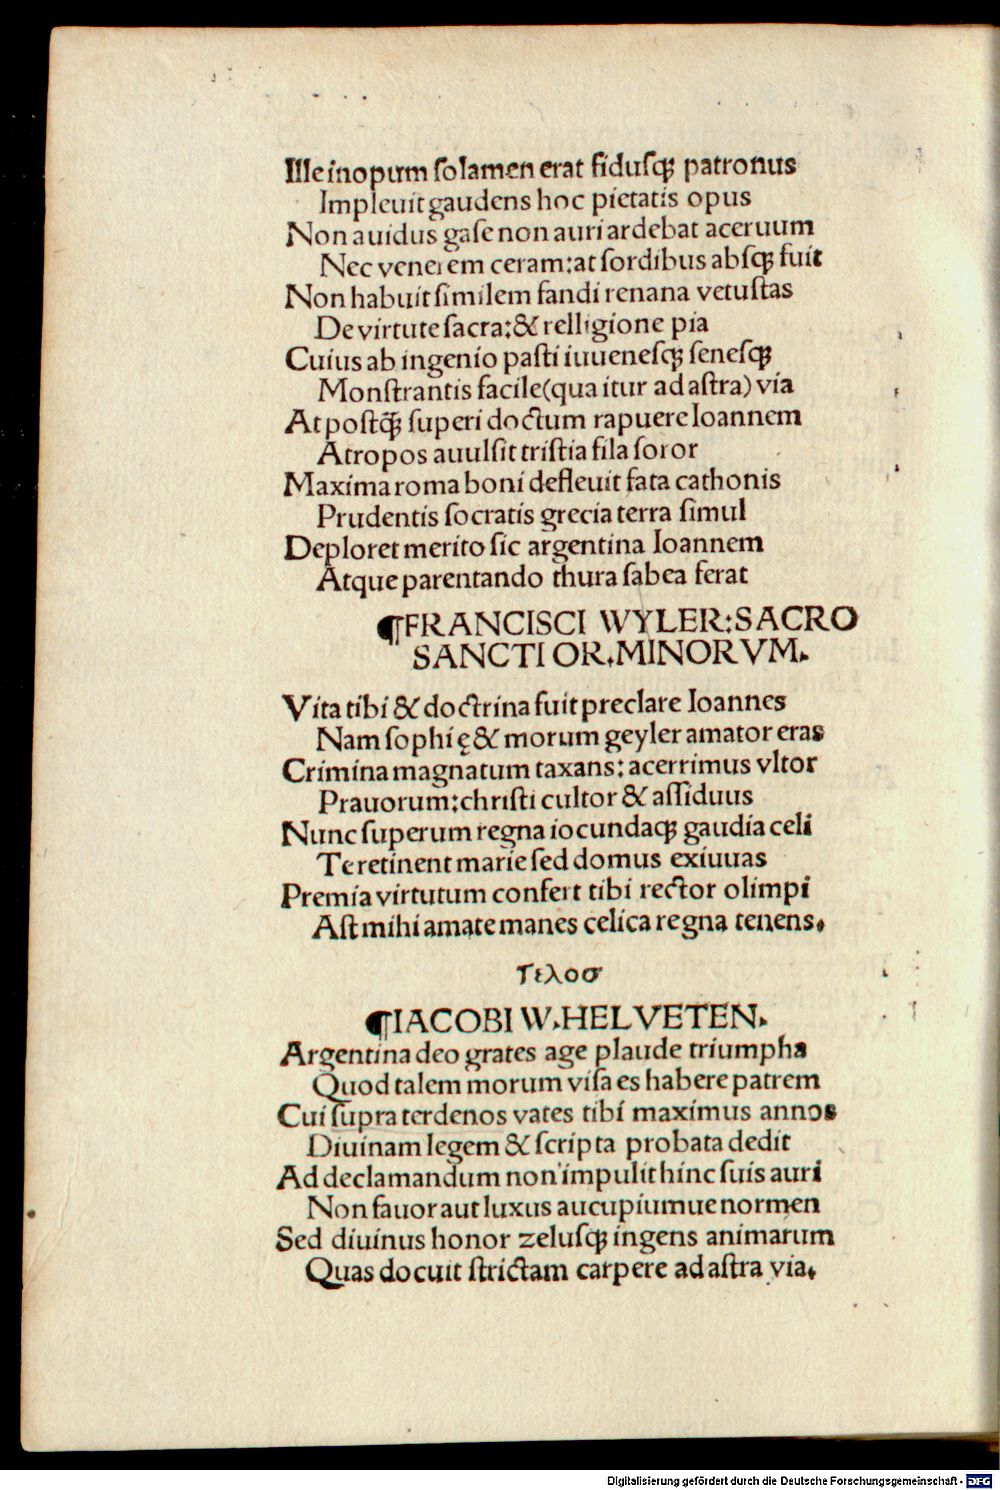 Ille inopum ſolamen erat fiduſqꝫ patronus
Impleuit gaudens hoc pietatis opus
Non auidus gaſe non auri ardebat aceruum
Nec venerem ceram: at ſordibus abſqꝫ fuit
Non habuit ſimilem fandi renana vetuſtas
De virtute ſacra: & relligione pia
Cuius ab ingenio paſti iuueneſqꝫ ſeneſqꝫ
Monſtrantis facile (qua itur ad aſtra) via
At poſtq̄ꝫ ſuperi doctum rapuere Ioannem
Atropos auulſit triſtia fila ſoror
Maxima roma boni defleuit fata cathonis
Prudentis ſocratis grecia terra ſimul
Deploret merito ſic argentina Ioannem
Atque parentando thura ſabea ferat
¶FRANCISCI WYLER: SACRO
SANCTI OR. MINORVM.
Vita tibi & doctrina fuit preclare Ioannes
Nam ſophię & morum geyler amator eras
Crimina magnatum taxans: acerrimus vltor
Prauorum: chriſti cultor & aſſiduus
Nunc ſuperum regna iocundaqꝫ gaudia celi
Te retinent marie ſed domus exiuuas
Premia virtutum confert tibi rector olimpi
Aſt mihi amate manes celica regna tenens.
Τελοσ
¶IACOBI W. HELVETEN.
Argentina deo grates age plaude triumpha
Quod talem morum viſa es habere patrem
Cui ſupra terdenos vates tibi maximus annos
Diuinam legem & ſcripta probata dedit
Ad declamandum non impulit hinc ſuis auri
Non fauor aut luxus aucupiumue normen
Sed diuinus honor zeluſqꝫ ingens animarum
Quas docuit ſtrictam carpere ad aſtra via.
Digitalisierung gefördert durch die Deutsche Forschungsgemeinschaft - DFG